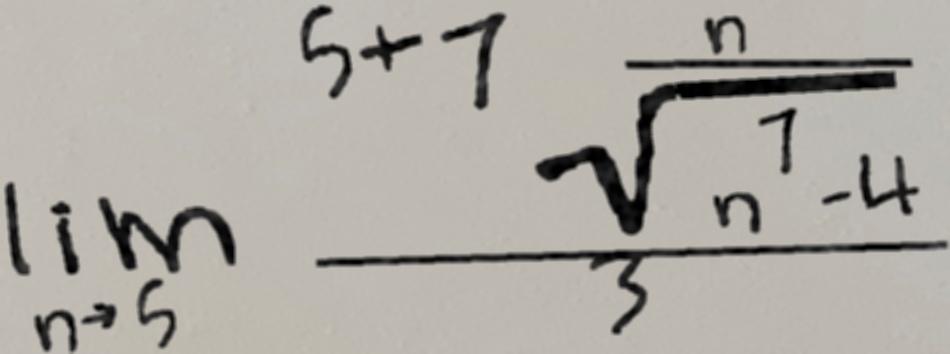 lim n→5 (5+7 n/√(n^7-4))/3